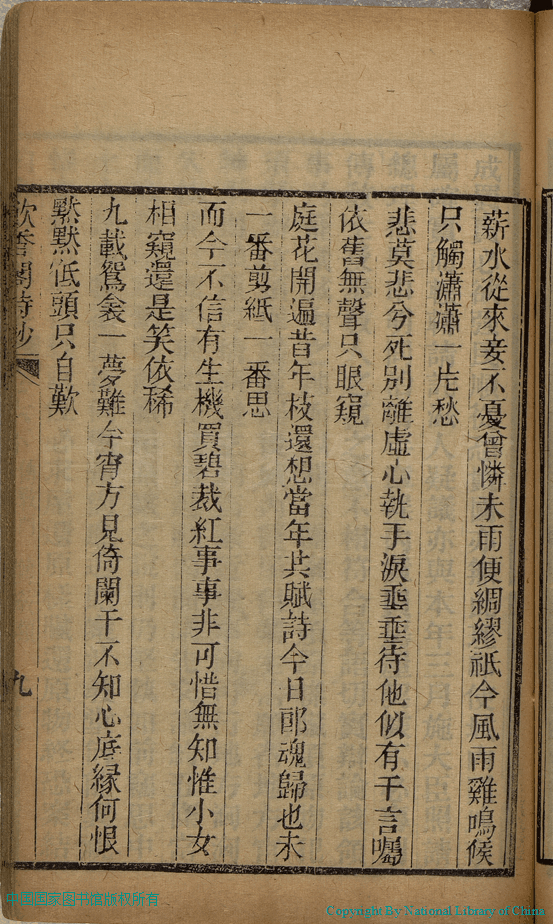 薪水從來妾不憂曾憐未雨便綢繆祇今風雨雞鳴候
只觸瀟瀟一片愁
悲莫悲兮死別離虛心執手淚垂垂待他似有千言囑
依舊無聲只眼窺
庭花開遍昔年枝還想當年共賦詩今日郎魂歸也未
一番剪紙一番思
而今不信有生機買碧裁紅事事非可惜無知惟小女
相窺還是笑依稀
九載鴛衾一夢難今宵方見倚闌干不知心底緣何恨
默默低頭只自歎
香閣詩鈔
九
中国国家图书馆版权所有
Copyright By National Library of China